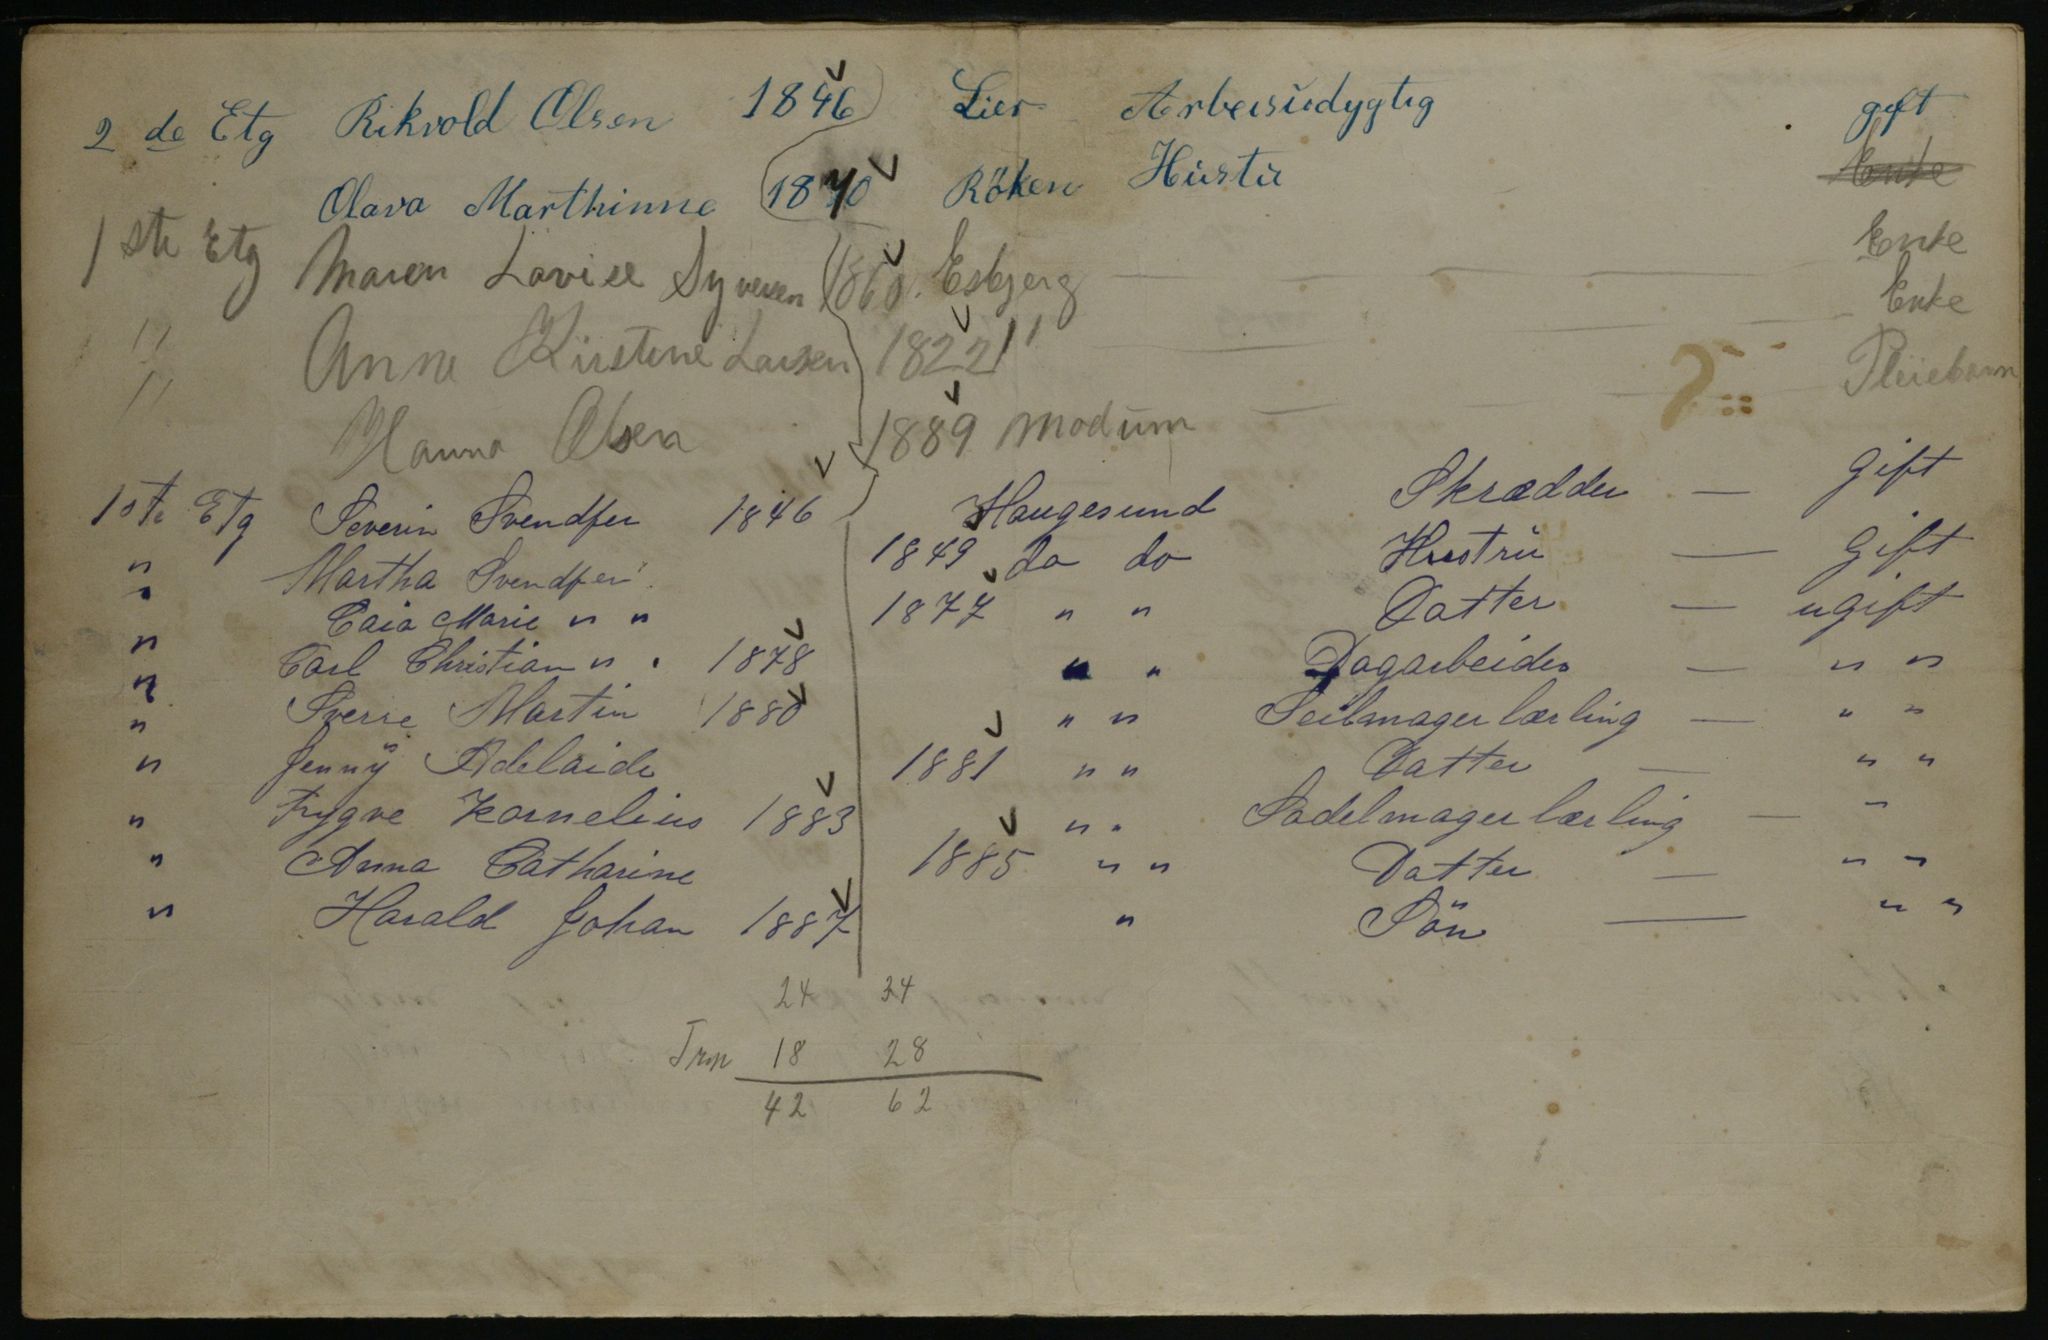 2 de Etg Rikvold Olsen 1846 Lier Arbeisüdygtig gift
Olava Marthinne 1870 Röken Hüstü Enke
1ste Etg Maren Lovise Syversen 1860 Esbjerg Enke
" Anne Kirstine Larsen 1822 " Enke
" Hanna Olsen 1889 Modum Pleiebarn
1ste Etg Severin Svendsen 1846 Haugesund Skrædder — gift
" Martha Svendsen 1849 do do Hustrü — Gift
" Caia Marie " " 1877 " " Datter — ugift
" Carl Christian " " 1878 " " Dagarbeider — " "
" Sverre Martin 1880 " " Seilmager lærling — " "
" Jenny Adelaide 1881 " " Datter — " "
" Trygve Kornelius 1883 " " Sadelmager lærling — "
" Anna Catharine 1885 " " Datter — " "
" Harald Johan 1887 " Sön — " "
24 34
18 28
42 62